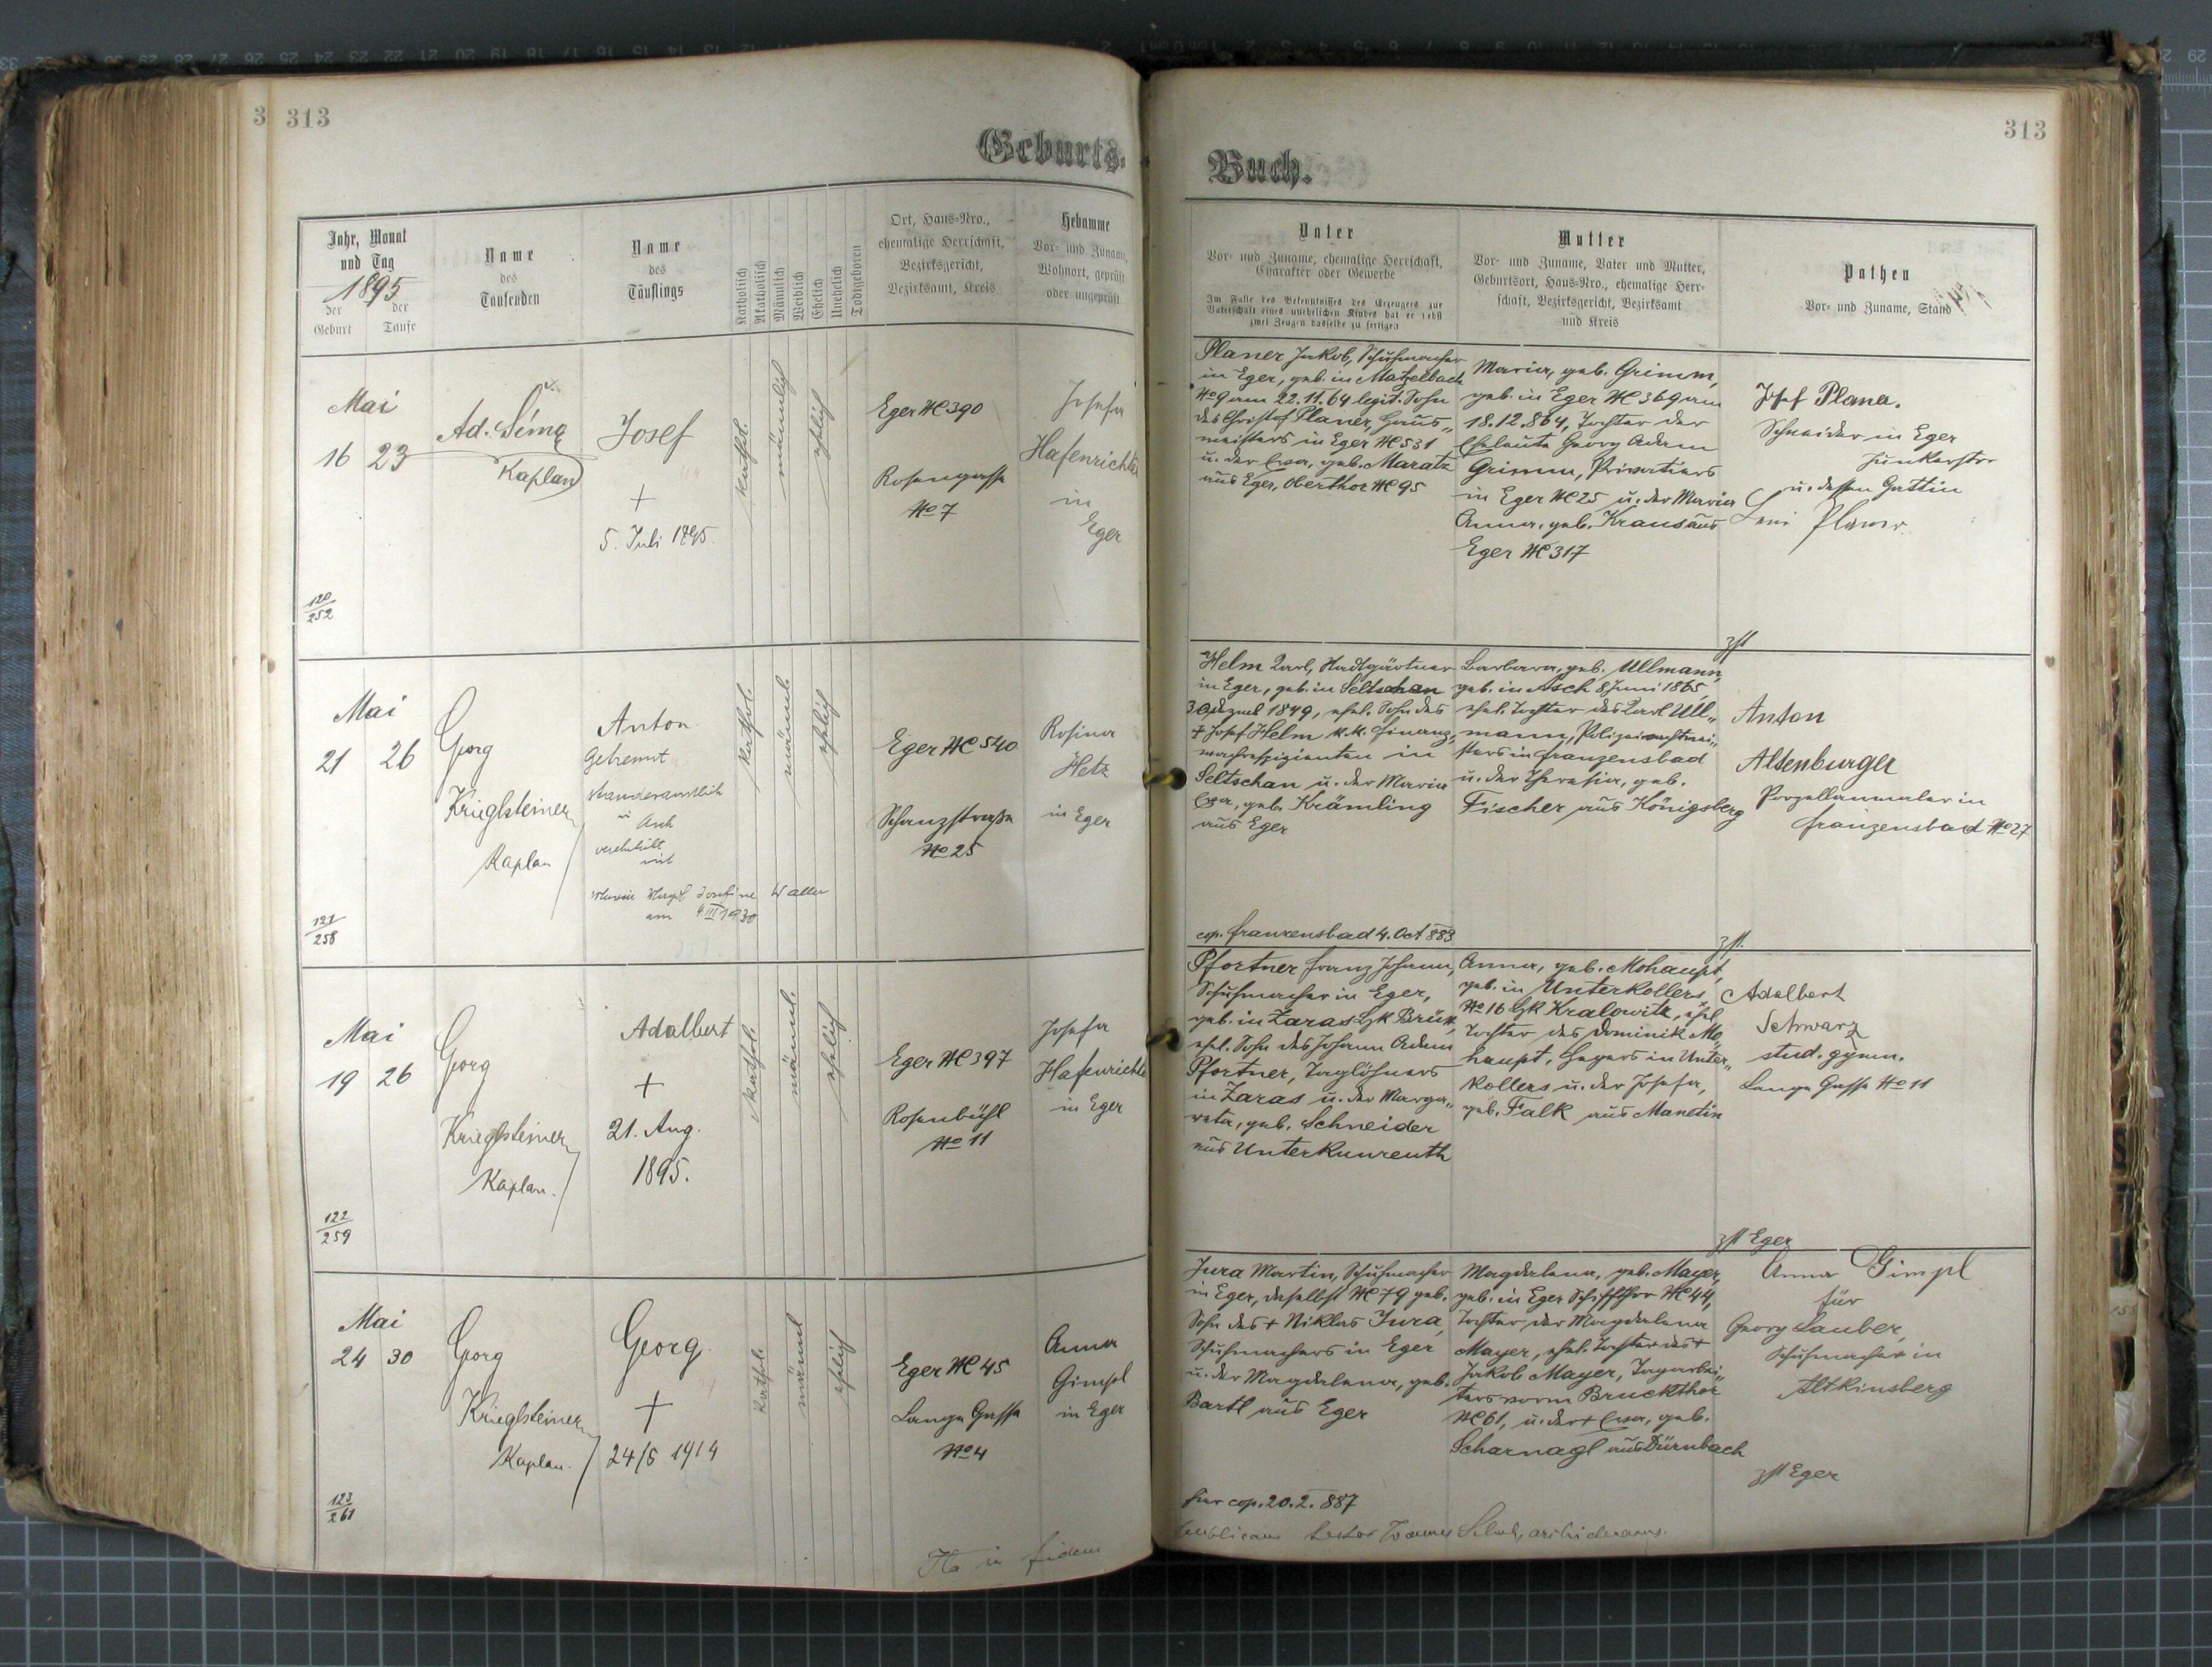 3 313
Geburts-
Jahr, Monat
und Tag
1895
der Geburt
der Taufe
Name
des
Taufenden
Name
des
Täuflings
Katholisch
Akatholisch
Männlich
Weiblich
Ehelich
Unehelich
Todtgeboren
Ort, Haus-Nro.,
ehemalige Herrschaft,
Bezirksgericht,
Bezirksamt, Kreis
Hebamme
Vor- und Zuname,
Wohnort, geprüft
oder ungeprüft
Mai
16 23
Ad. Síma
Kaplan
Josef
+
5. Juli 1895.
kathol.
männlich
ehelich
Eger NC 390
Rosengasse
No 7
Josefa
Hafenrichter
in
Eger
120
252
Mai
21 26
Georg
Krieglsteiner
Kaplan
Anton
Getrennt
standesamtlich
in Asch
verehelicht
mit
Josefine Waller
am 4 III 1930
kathol.
männl.
ehelich
Eger NC 540
Schanzstraße
No 25
Rosina
Hetz
in Eger
121
258
Mai
19 26
Georg
Krieglsteiner
Kaplan.
Adalbert
+
21. Aug.
1895.
kathol.
männl.
ehelich
Eger NC 397
Rosenbühl
No 11
Josefa
Hafenrichter
in Eger
122
259
Mai
24 30
Georg
Krieglsteiner
Kaplan.
Georg
+
24/5 1914
kathol.
männl
ehelich
Eger NC 45
Lange Gasse
No 4
Anna
Gimpl
in Eger
123
261
Ita in fidem
313
Buch.
Vater
Vor- und Zuname, ehemalige Herrschaft,
Charakter oder Gewerbe
Im Falle des Bekenntnisses des Erzeugers zur
Vaterschaft eines unehelichen Kindes hat er nebst
zwei Zeugen dasselbe zu fertigen
Mutter
Vor- und Zuname, Vater und Mutter,
Geburtsort, Haus-Nro., ehemalige Herr-
schaft, Bezirksgericht, Bezirksamt
und Kreis
Pathen
Vor- und Zuname, Stand
Planer Jakob, Schuhmacher
in Eger, geb. in Matzelbach
No 9 am 22.11.64 legit. Sohn
des Christof Planer, Haus„
meisters in Eger NC 531
u. der Eva, geb. Maratz
aus Eger, Oberthor NC 95
Maria, geb. Grimm,
geb. in Eger NC 369 am
18.12.864, Tochter der
Eheleute Georg Adam
Grimm, Privatiers
in Eger NC 25 u. der Maria
Anna, geb. Kraus aus
Eger NC 317
Josef Planer.
Schneider in Eger
Junkerstr
u. dessen Gattin
Leni Planer
Helm Karl, Stadtgärtner
in Eger, geb. in Seltschan
1849, ehel. Sohn des
+ Josef Helm k.k. Finanz„
in
Seltschan u. der Maria
Eva, geb. Krämling
aus Eger
cop. Franzensbad 4. Oct 883
Barbara, geb. Ullmann,
geb. in Asch 8 Juni 1865
ehel. Tochter des Karl Ull„
mann, Polizeiwachtmei„
sters in Franzensbad
u. der Theresia, geb.
Fischer aus Königsberg
zst
Anton
Altenburger
Porzellanmaler in
Franzensbad No 27
Pfortner Franz Johann,
Schuhmacher in Eger,
geb. in Zaras Bzk Brüx,
ehel. Sohn des Johann Adam
Pfortner, Taglöhners
in Zaras u. der Marga„
reta, geb. Schneider
aus Unterkunreuth
Anna, geb. Mohaupt,
geb. in Unterkollers
No 16 Bzk Kralowitz, ehel
Tochter des Dominik Mo„
haupt, Hegers in Unter„
kollers u. der Josefa,
geb. Falk aus Manetin
zst.
Adalbert
Schwarz
stud. gymn.
Lange Gasse No 11
Jura Martin, Schuhmacher
in Eger, daselbst NC 79 geb.
Sohn des + Niklas Jura,
Schuhmachers in Eger
u. der Magdalena, geb.
Bartl aus Eger
hier cop. 20. 2. 887
Magdalena, geb. Mayer,
geb. in Eger Schiffthor NC 44,
Tochter der Magdalena
Mayer, ehel. Tochter des +
Jakob Mayer, Tagarbei„
ters vorm Bruckthor
NC 61, u. der + Eva, geb.
Scharnagl aus Dürnbach
zst Eger
Anna Gimpl
für
Georg Lauber,
Schuhmacher in
Altkinsberg
zst Eger